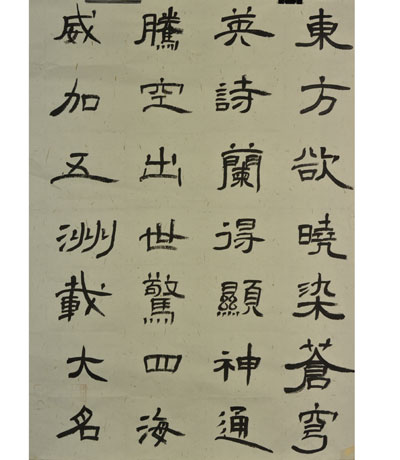 東方欲曉染蒼穹
英詩蘭得顯神通
騰空出世驚四海
威加五洲載大名